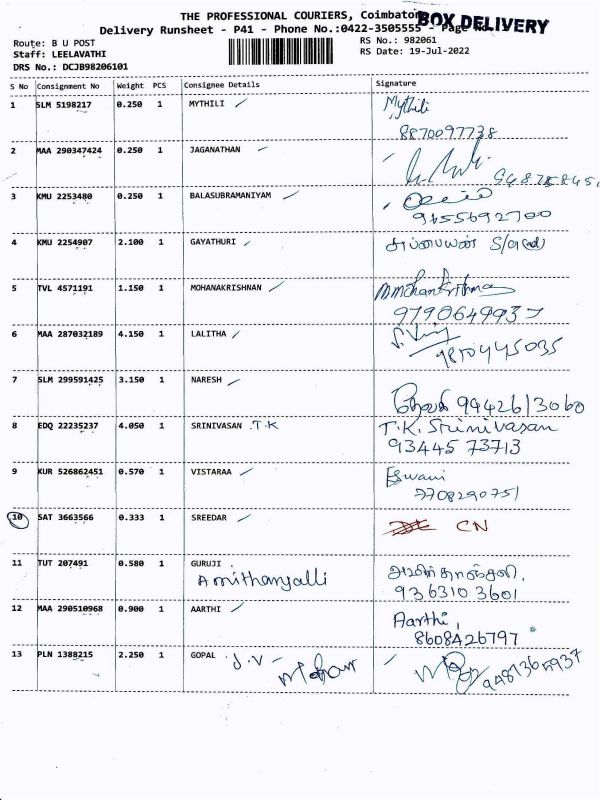 THE PROFESSIONAL COURIERS, Coimbatore
BOX DELIVERY
Delivery Runsheet - P41 - Phone No.:0422-3505555 - Page No
Route: B U POST
RS No.: 982061
Staff: LEELAVATHI
RS Date: 19-Jul-2022
DRS No.: DCJB98206101
S No Consignment No Weight PCS Consignee Details Signature
1 SLM 5198217 0.250 1 MYTHILI Mythili
8870097738
2 MAA 290347424 0.250 1 JAGANATHAN
3 KMU 2253480 0.250 1 BALASUBRAMANIYAM
9655692700
4 KMU 2254907 2.100 1 GAYATHURI
5 TVL 4571191 1.150 1 MOHANAKRISHNAN
9790649937
6 MAA 287032189 4.150 1 LALITHA
9870445035
7 SLM 299591425 3.150 1 NARESH
9942613060
8 EDQ 22235237 4.050 1 SRINIVASAN .T.K T.K. Srinivasan
93445 73713
9 KUR 526862451 0.570 1 VISTARAA Eswari
7708290751
10 SAT 3663566 0.333 1 SREEDAR CN
11 TUT 207491 0.580 1 GURUJI
9363103601
12 MAA 290510968 0.900 1 AARTHI Aarthi,
8608426797
13 PLN 1388215 2.250 1 GOPAL . J.V -
Mohan